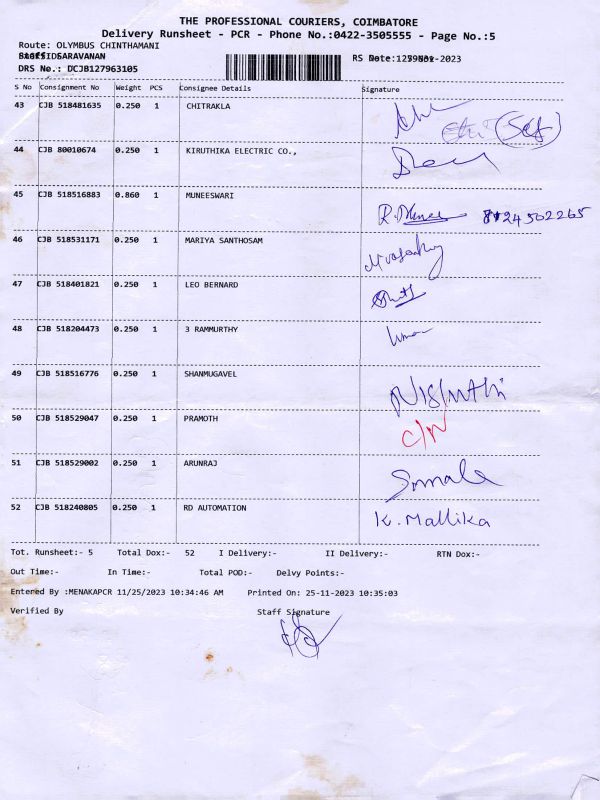 THE PROFESSIONAL COURIERS, COIMBATORE
Delivery Runsheet - PCR - Phone No.:0422-3505555 - Page No.:5
Route: OLYMBUS CHINTHAMANI
SARAVANAN
DRS No.: DCJB127963105
RS -2023
S No Consignment No Weight PCS Consignee Details Signature
43 CJB 518481635 0.250 1 CHITRAKLA (Self)
44 CJB 80010674 0.250 1 KIRUTHIKA ELECTRIC CO.,
45 CJB 518516883 0.860 1 MUNEESWARI 8124502265
46 CJB 518531171 0.250 1 MARIYA SANTHOSAM
47 CJB 518401821 0.250 1 LEO BERNARD
48 CJB 518204473 0.250 1 3 RAMMURTHY
49 CJB 518516776 0.250 1 SHANMUGAVEL Nishathi
50 CJB 518529047 0.250 1 PRAMOTH C/N
51 CJB 518529002 0.250 1 ARUNRAJ
52 CJB 518240805 0.250 1 RD AUTOMATION K. Mallika
Tot. Runsheet:- 5 Total Dox:- 52 I Delivery:- II Delivery:- RTN Dox:-
Out Time:- In Time:- Total POD:- Delvy Points:-
Entered By :MENAKAPCR 11/25/2023 10:34:46 AM Printed On: 25-11-2023 10:35:03
Verified By Staff Signature